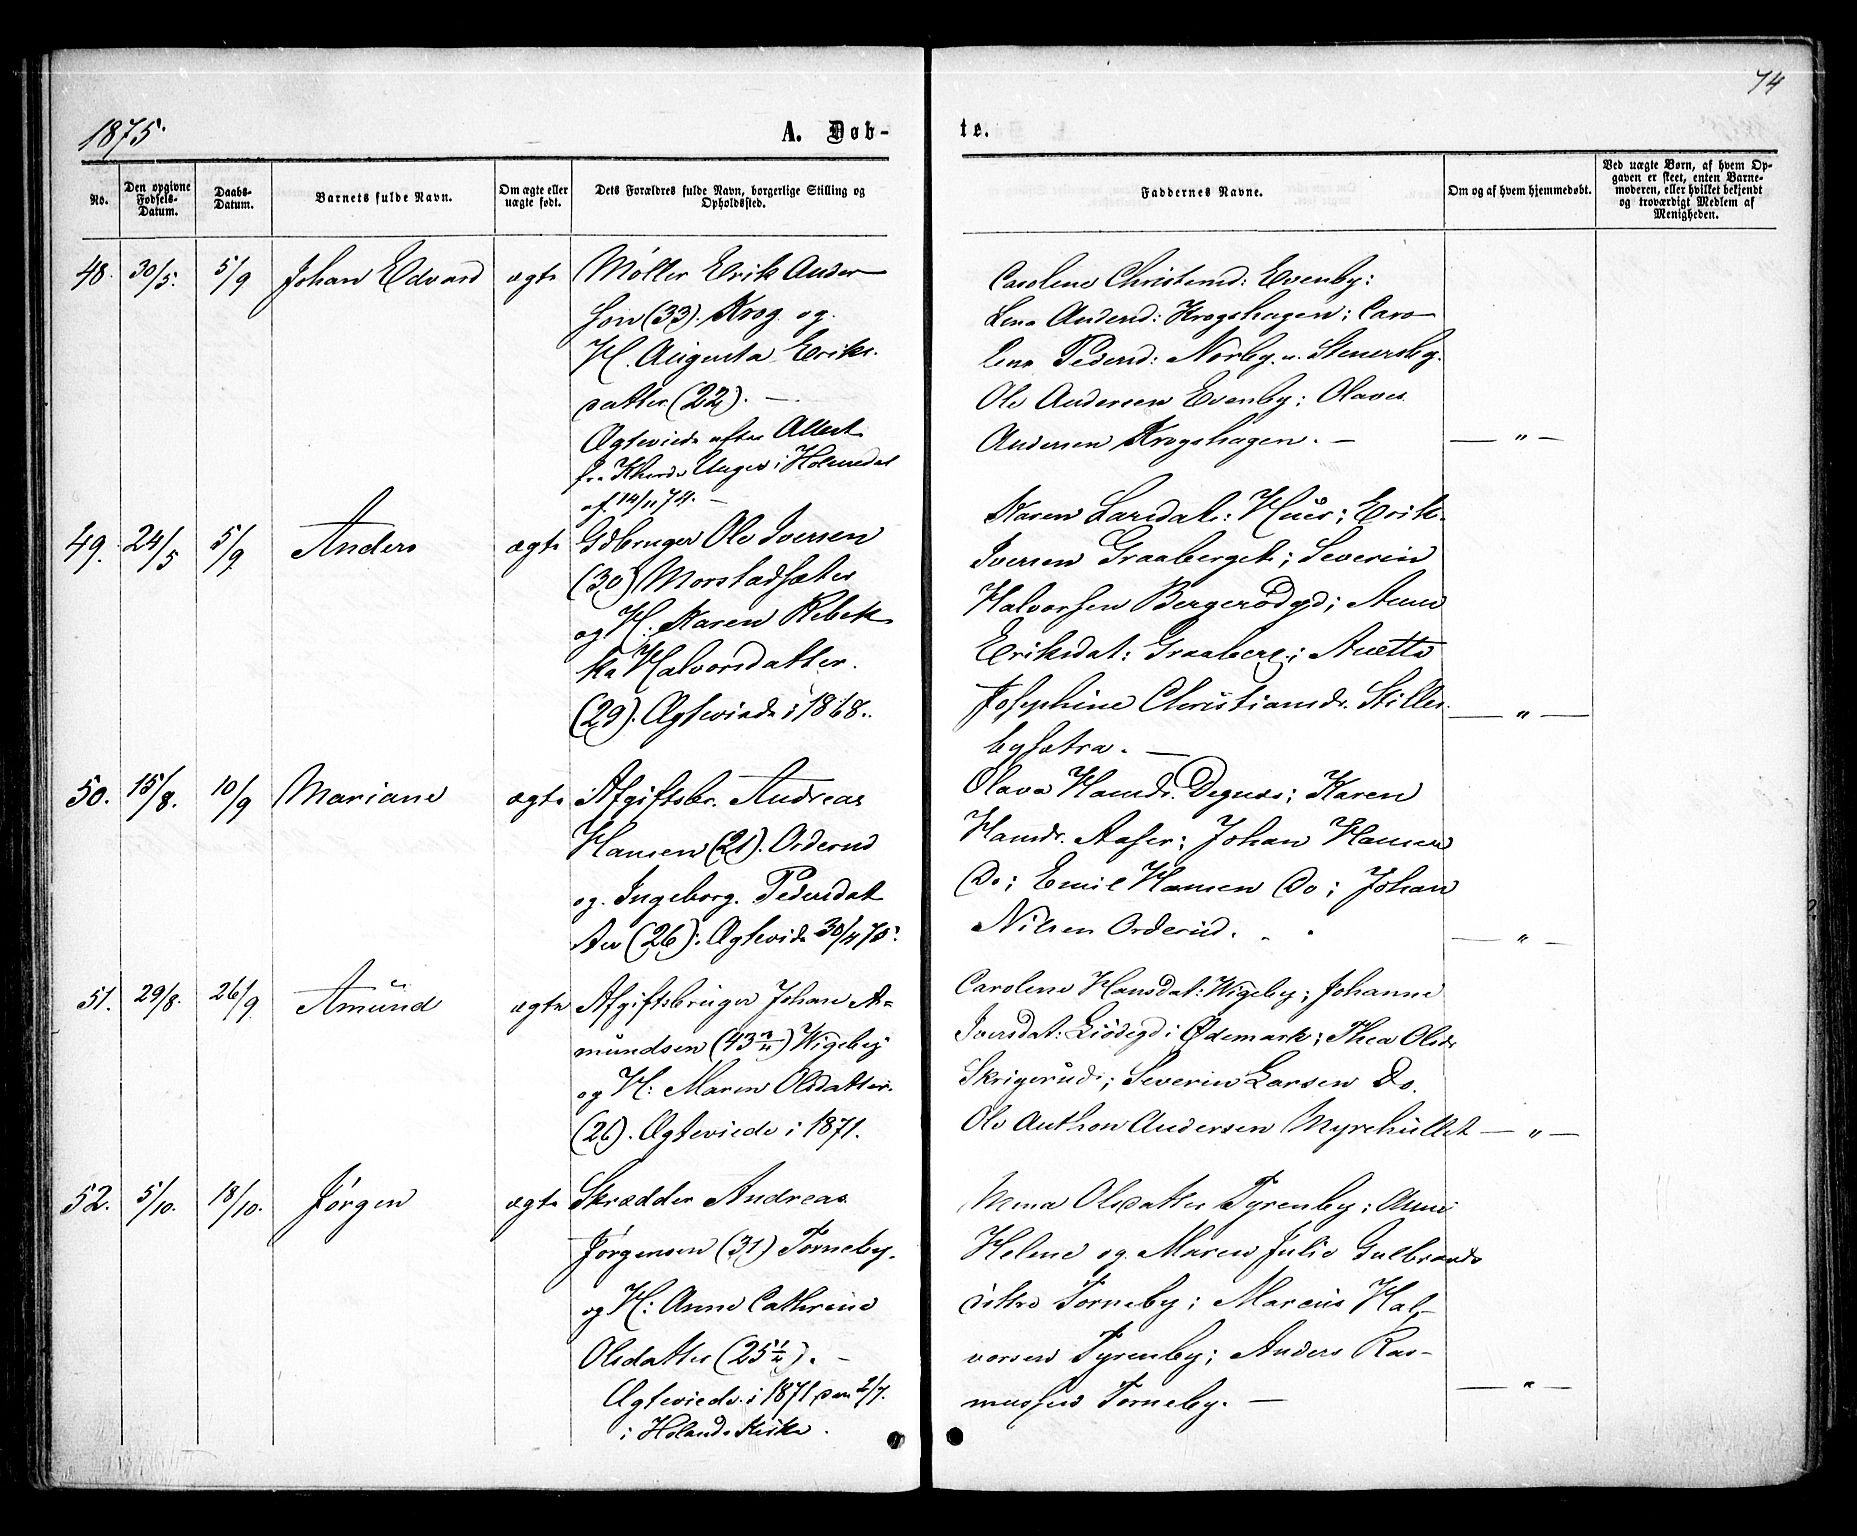 74
1875.
A. Døb-
te.
No.
Den opgivne
Fødsels-
Datum.
Daabs-
Datum.
Barnets fulde Navn.
Om ægte eller
uægte født.
Dets Forældres fulde Navn, borgerlige Stilling og
Opholdssted.
Faddernes Navne.
Om og af hvem hjemmedøbt.
Ved uægte Børn, af hvem Op-
gaven er skeet, enten Barne-
moderen, eller hvilket bekjendt
og troværdigt Medlem af
Menigheden.
48. 30/5. 5/9 Johan Edvard ægte
Møller Erik Ander-
son (33). Krog og
H. Augusta Eriks-
datter (22). —
Ægteviede efter Attest
14/11 74. —
Carolene Christensd: Evenby:
Lena Andersd: Krogshagen; Caro-
lena Pedersd: Nørby
Ole Andersen Evenby; Olaves
Andersen Krogshagen. — — " —
49. 24/5 5/9 Anders ægte
Gdbruger Ole Iversen
(30) Morstadsæter
og H. Karen Rebek-
ka Halvorsdatter.
(29). Ægteviede i 1868.
Karen Larsdat: Huer; Erik
Iversen Graaberget; Severin
Halvorsen Bergerødgd; Anne
Eriksdat: Graaberg; Anette
Josephine Christiansdr. Stiller-
bysætra. — — " —
50. 15/8. 10/9 Mariane ægte
Afgiftsbr. Andreas
Hansen (21). Orderud
og Ingeborg Pedersdat-
ter (26): Ægteviede 30/4 75.
Olava Hansdr. Degnes; Karen
Hansdr. Aaser; Johan Hansen
Do; Emil Hansen Do; Johan
Nilsen Orderud. — " —
51. 29/8. 26/9 Amund ægte
Afgiftsbruger Johan A-
mundsen (43) Wigeby
og H: Maren Olsdatter.
(26). Ægteviede i 1871.
Carolene Hansdat: Wigeby; Johanne
Iversdat: Liødegd i Ødemark; Thea Olsdr
Skrigerud; Severin Larsen Do.
Ole Anthon Andersen Myrehullet — " —
52. 5/10. 18/10. Jørgen ægte
Skrædder Andreas
Jørgensen (31) Torneby.
og H: Anne Cathrine
Olsdatter (25 1/4). —
Ægteviede i 1871 den 2/7.
i Hølands Kirke.
Mina Olsdatter Tyrenby; Anne
Helene og Maren Julie Gulbrands
døtre Torneby; Marcus Hal-
vorsen Tyrenby; Anders Ras-
mussen Torneby. — — " —